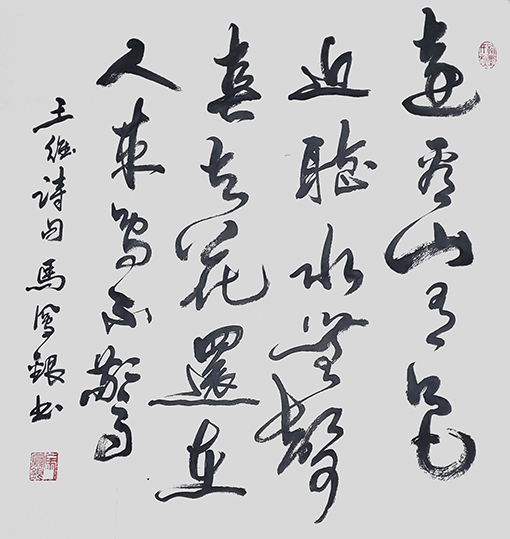 遠看山有色
近聽水無聲
春去花還在
人來鳥不驚
王維詩句 馬鳳銀書